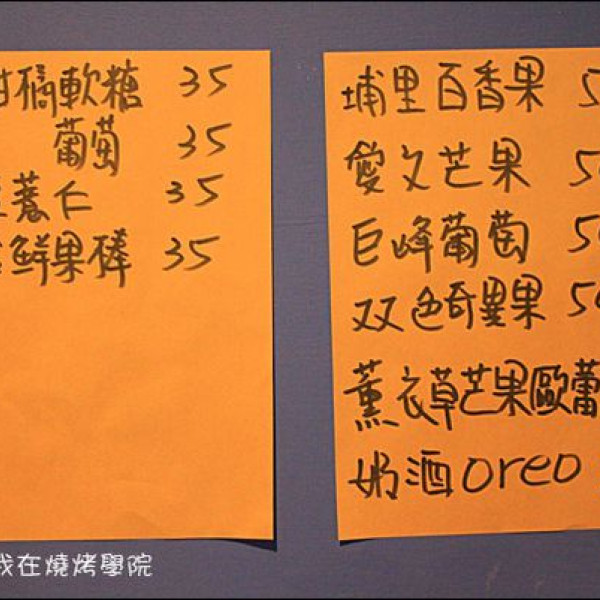 柑橘軟糖 35
葡萄 35
薏仁 35
鮮果棒 35
埔里百香果 5
愛文芒果 50
巨峰葡萄 50
双色奇異果 50
薰衣草芒果歐蕾
奶酒oreo
我在燒烤學院